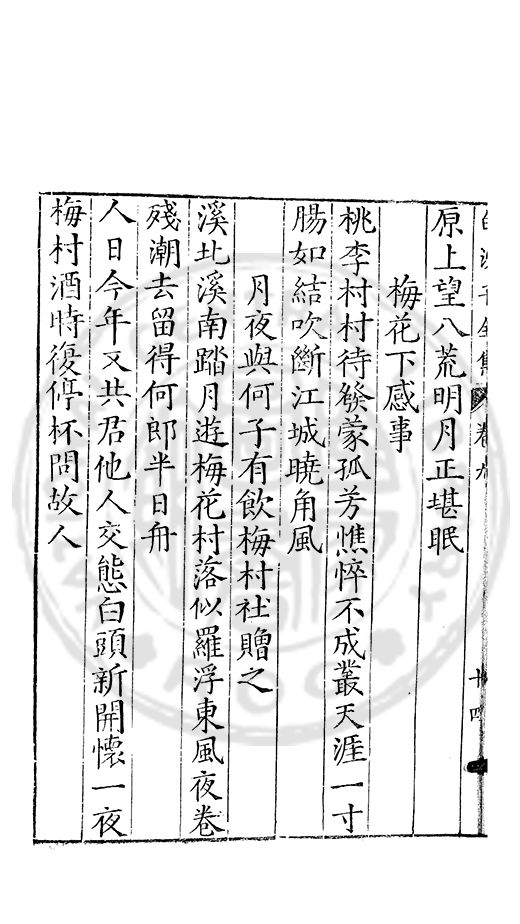 原上望八荒明月正堪眠
梅花下感事
桃李村村待發蒙孤芳憔悴不成叢天涯一寸
腸如結吹斷江城曉角風
月夜與何子有飲梅村社贈之
溪北溪南踏月遊梅花村落似羅浮東風夜卷
殘潮去留得何郎半日舟
人日今年又共君他人交態白頭新開懷一夜
梅村酒時復停杯問故人